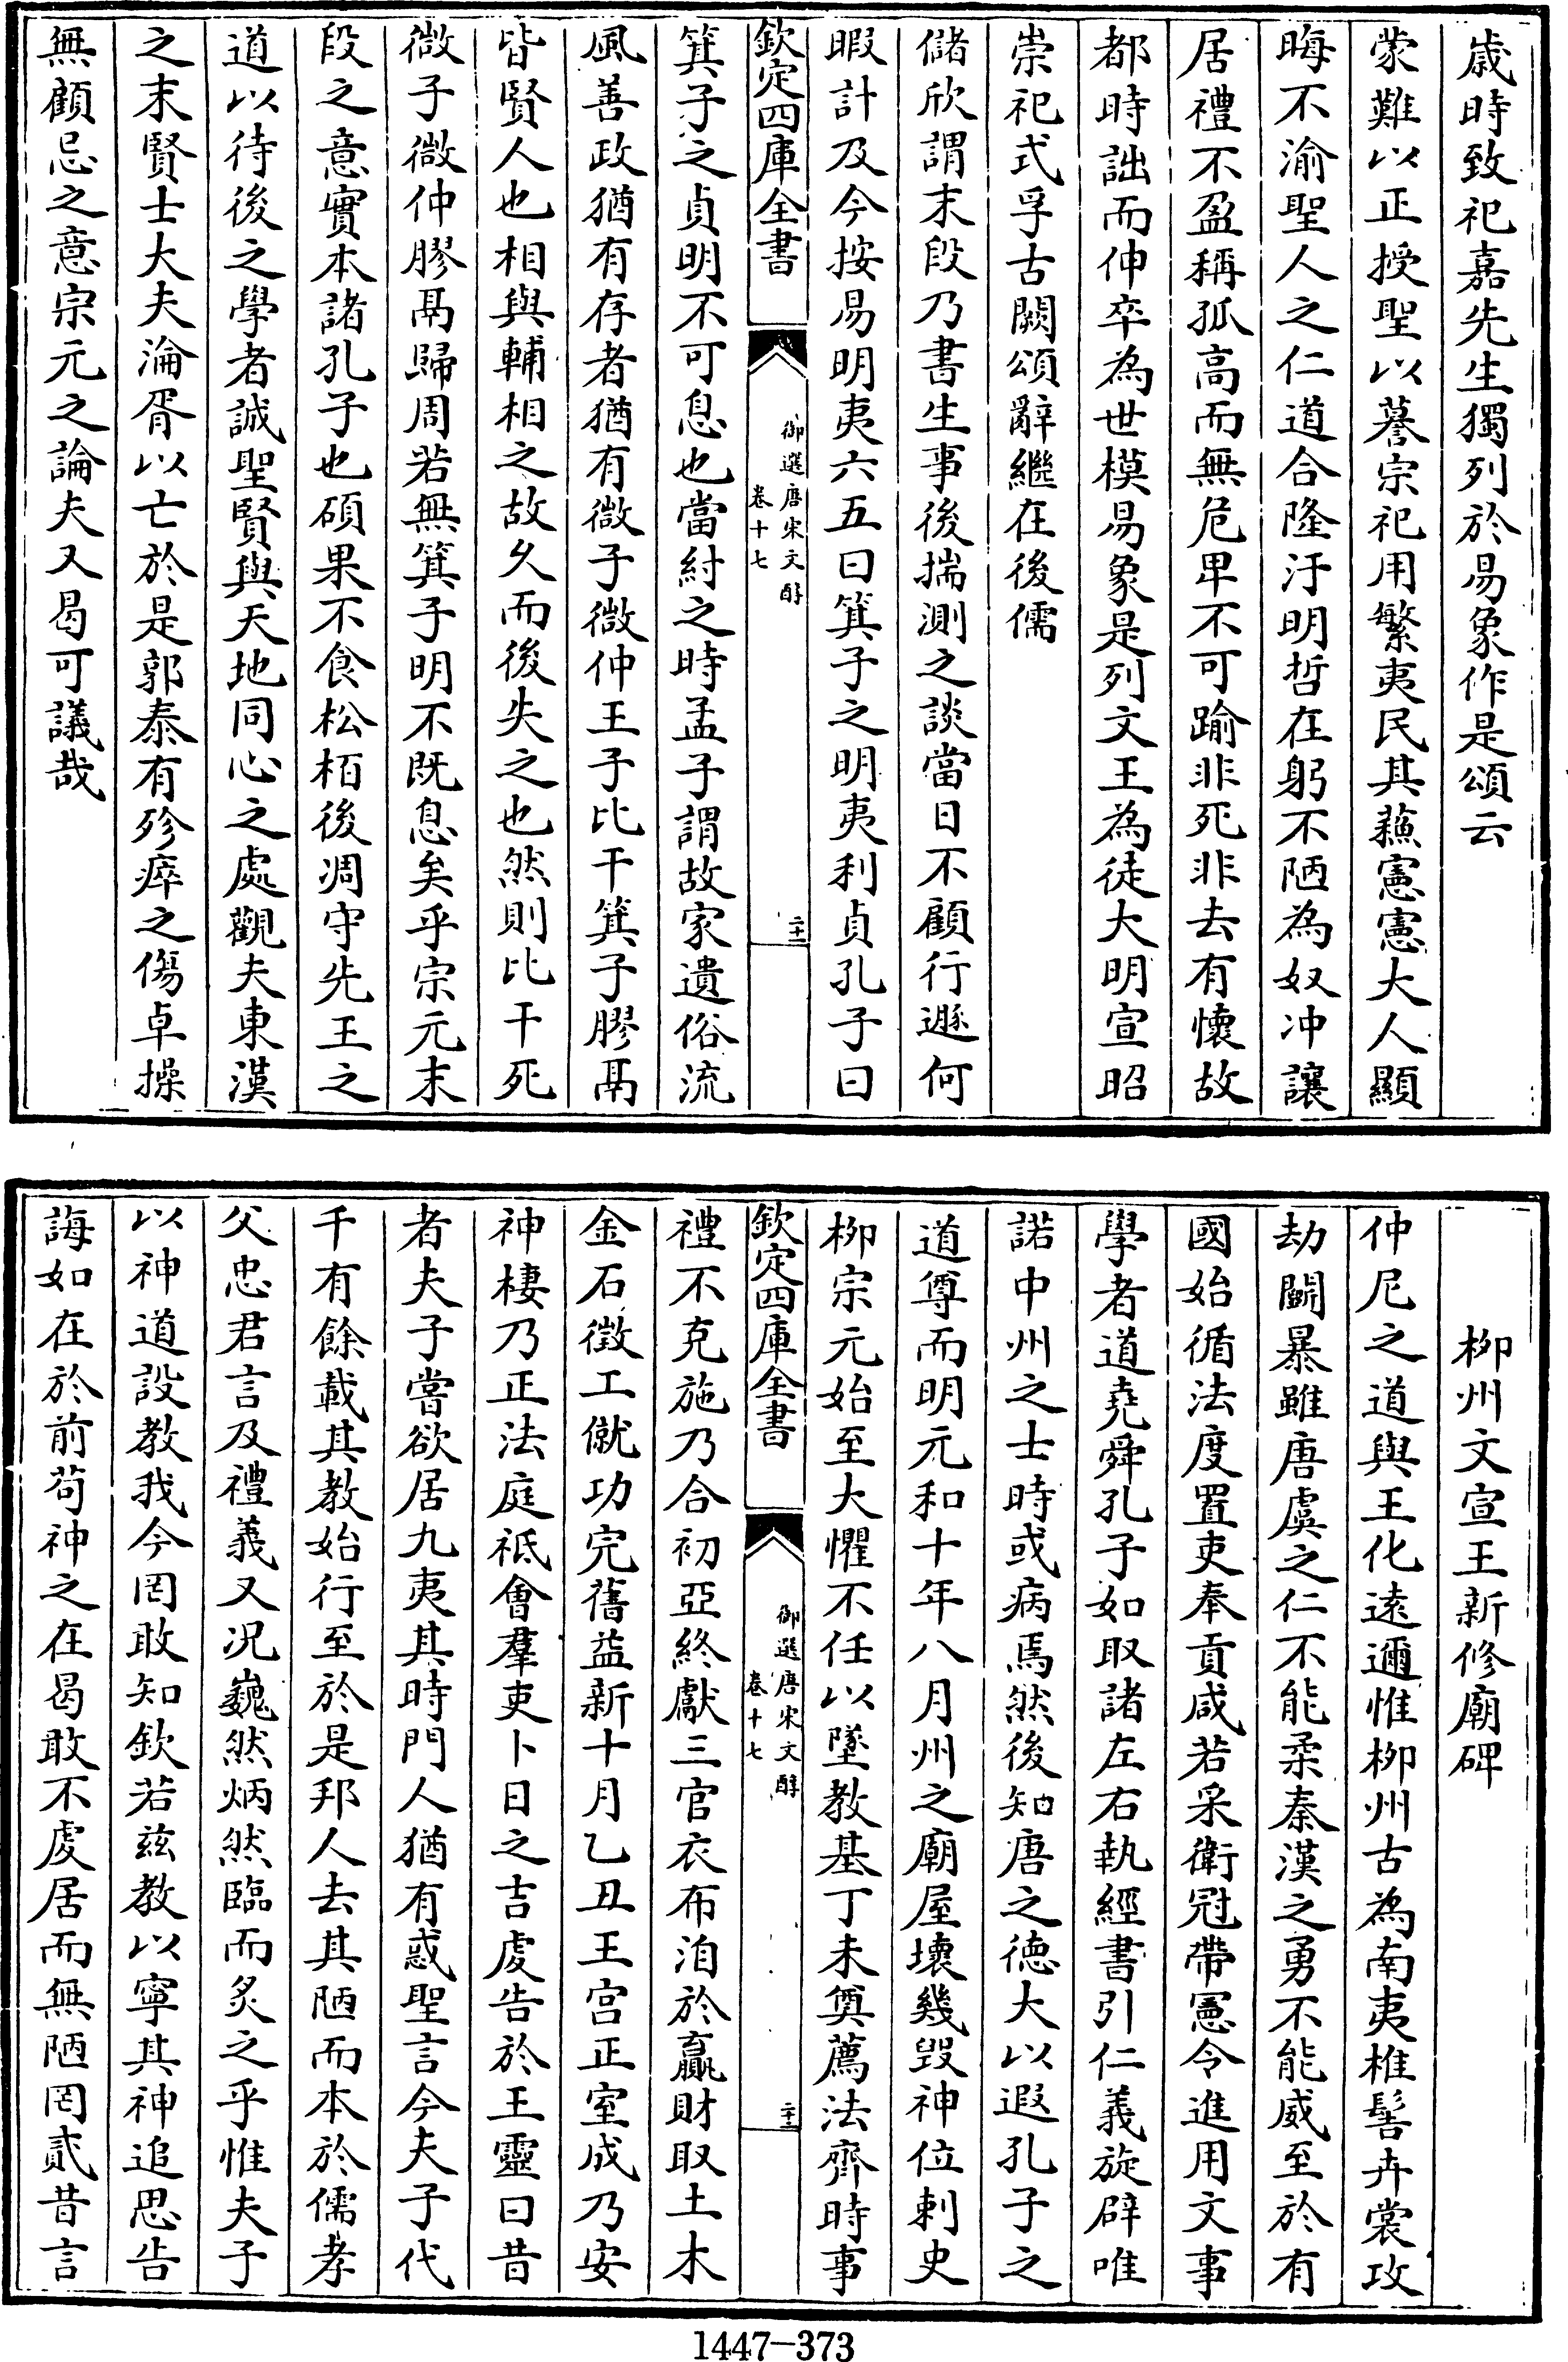 歲時致祀嘉先生獨列於易象作是頌云
蒙難以正授聖以謩宗祀用繁夷民其蘇憲憲大人顯
晦不渝聖人之仁道合隆汙明哲在躬不陋為奴冲讓
居禮不盈稱孤高而無危卑不可踰非死非去有懷故
都時詘而伸卒為世模易象是列文王為徒大明宣昭
崇祀式孚古闕頌辭繼在後儒
儲欣謂末段乃書生事後揣測之談當日不顧行遯何
暇計及今按易明夷六五曰箕子之明夷利貞孔子曰
欽定四庫全書
御選唐宋文醇
卷十七
二十一
箕子之貞明不可息也當紂之時孟子謂故家遺俗流
風善政猶有存者猶有微子微仲王子比干箕子膠鬲
皆賢人也相與輔相之故久而後失之也然則比干死
微子微仲膠鬲歸周若無箕子明不既息矣乎宗元末
段之意實本諸孔子也碩果不食松栢後凋守先王之
道以待後之學者誠聖賢與天地同心之處觀夫東漢
之末賢士大夫淪胥以亡於是郭泰有殄瘁之傷卓操
無顧忌之意宗元之論夫又曷可議哉
柳州文宣王新修廟碑
仲尼之道與王化遠邇惟柳州古為南夷椎髻卉裳攻
劫鬭暴雖唐虞之仁不能柔秦漢之勇不能威至於有
國始循法度置吏奉貢咸若采衛冠帶憲令進用文事
學者道堯舜孔子如取諸左右執經書引仁義旋辟唯
諾中州之士時或病焉然後知唐之德大以遐孔子之
道尊而明元和十年八月州之廟屋壞幾毀神位刺史
柳宗元始至大懼不任以墜教基丁未奠薦法齊時事
欽定四庫全書
御選唐宋文醇
卷十七
二十二
禮不克施乃合初亞終獻三官衣布洎於贏財取土木
金石徵工僦功完舊益新十月乙丑王宮正室成乃安
神棲乃正法庭祗會羣吏卜日之吉虔告於王靈曰昔
者夫子嘗欲居九夷其時門人猶有惑聖言今夫子代
千有餘載其教始行至於是邦人去其陋而本於儒孝
父忠君言及禮義又况巍然炳然臨而炙之乎惟夫子
以神道設教我今罔敢知欽若兹教以寧其神追思告
誨如在於前苟神之在曷敢不虔居而無陋罔貳昔言
1447-373